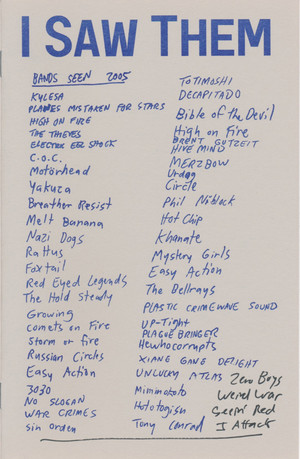 I SAW THEM
BANDS SEEN 2005
KYLESA
PLANES MISTAKEN FOR STARS
HIGH ON FIRE
THE THIEVES
ELECTRO SHOCK
C.O.C.
Motörhead
Yakuza
Breather Resist
Melt Banana
Nazi Dogs
Rattus
Foxtail
Red Eyed Legends
The Hold Steady
Growing
Comets on Fire
Storm or fire
Russian Circles
Easy Action
3030
NO SLOGAN
WAR CRIMES
sin orden
TOTIMOSHI
DECAPITADO
Bible of the Devil
High on Fire
BRENT GUTZEIT
HIVE MIND
MERZBOW
Circle
Phil Niblock
Hot Chip
Khanate
Mystery Girls
Easy Action
The Bellrays
PLASTIC CRIMEWAVE SOUND
UP-Tight
PLAGUE BRINGER
Hewhocorrupts
XIANE GANE DELIGHT
UNLUCKY ATLAS
Miminokoto
Hototogisu
Tony Conrad
Zero Boys
Weird War
Seein' Red
I Attack